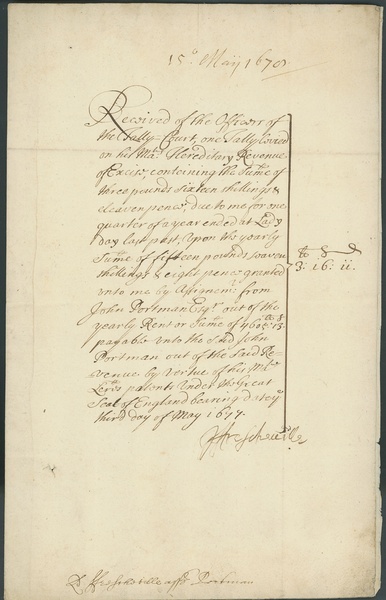 15º May 1678
Received of the Officers of
the Tally-Court, one Tally levied
on his Mats Hereditary Revenue
of Excise, containing the Sume of
three pounds sixteen shillings &
eleaven pence, due to me for one
quarter of a year ended at Lady
day last past, Upon the yearly
Sume of fifteen pounds seaven
shillings & eight pence granted
unto me by Assignemt from
John Portman Esqr out of the
yearly Rent or Sume of
payable unto the said John
Portman out of the said Re=
venue by vertue of his Mats
Lers patents Under the Great
Seal of England bearing date ye
third day of May 1677.
li s d
3: 16: 11.
Frescheville
Ld Frescheville assee Portman